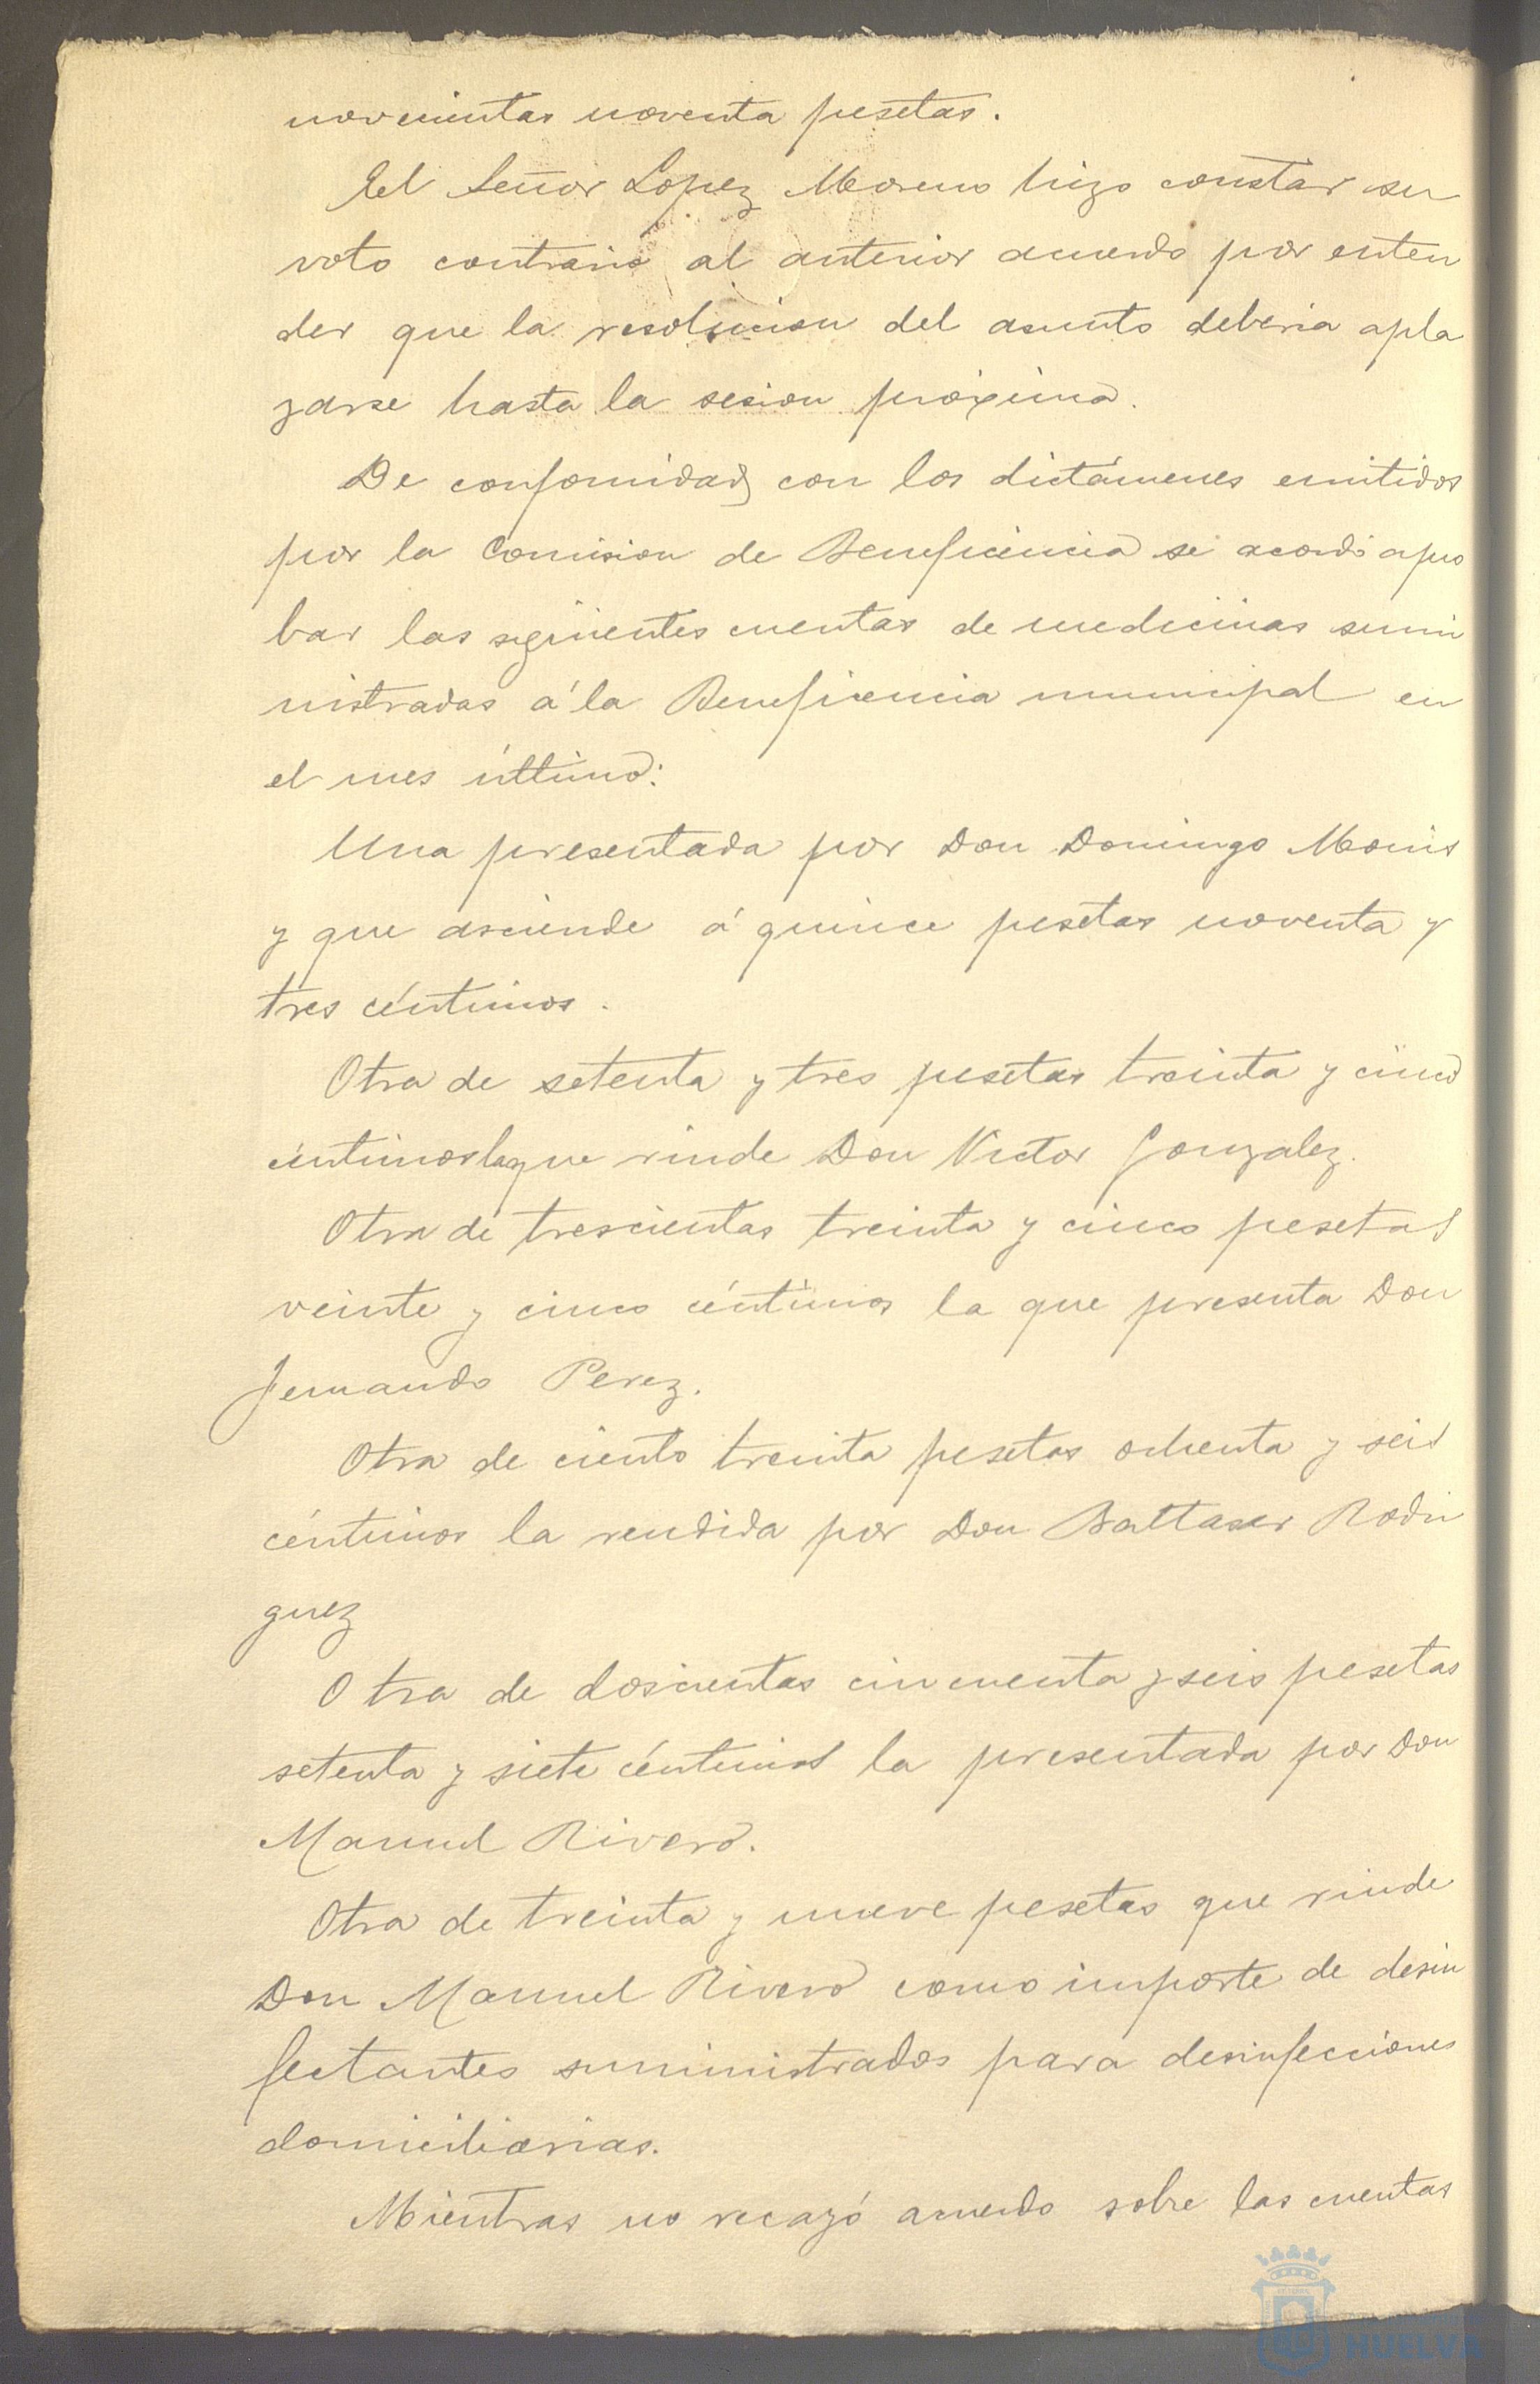 novecientas noventa pesetas.
El Señor Lopez Moreno hizo constar su
voto contrario al anterior acuerdo por enten
der que la resolucion del asunto deberia apla
zarse hasta la sesion próxima.
De conformidad con los dictámenes emitidos
por la Comision de Beneficencia se acordó apro
bar las siguientes cuentas de medicinas sumi
nistradas á la Beneficencia municipal en
el mes último:
Una presentada por Don Domingo Monis
y que asciende á quince pesetas noventa y
tres céntimos.
Otra de setenta y tres pesetas treinta y cinco
céntimos la que rinde Don Victor Gonzalez.
Otra de trescientas treinta y cinco pesetas
veinte y cinco céntimos la que presenta Don
Fernando Perez.
Otra de ciento treinta pesetas ochenta y seis
céntimos la rendida por Don Baltasar Rodri
guez
Otra de doscientas cincuenta y seis pesetas
setenta y siete céntimos la presentada por Don
Manuel Rivero.
Otra de treinta y nueve pesetas que rinde
Don Manuel Rivero como importe de desin
fectantes suministrados para desinfecciones
domiciliarias.
Mientras no recayó acuerdo sobre las cuentas
HUELVA